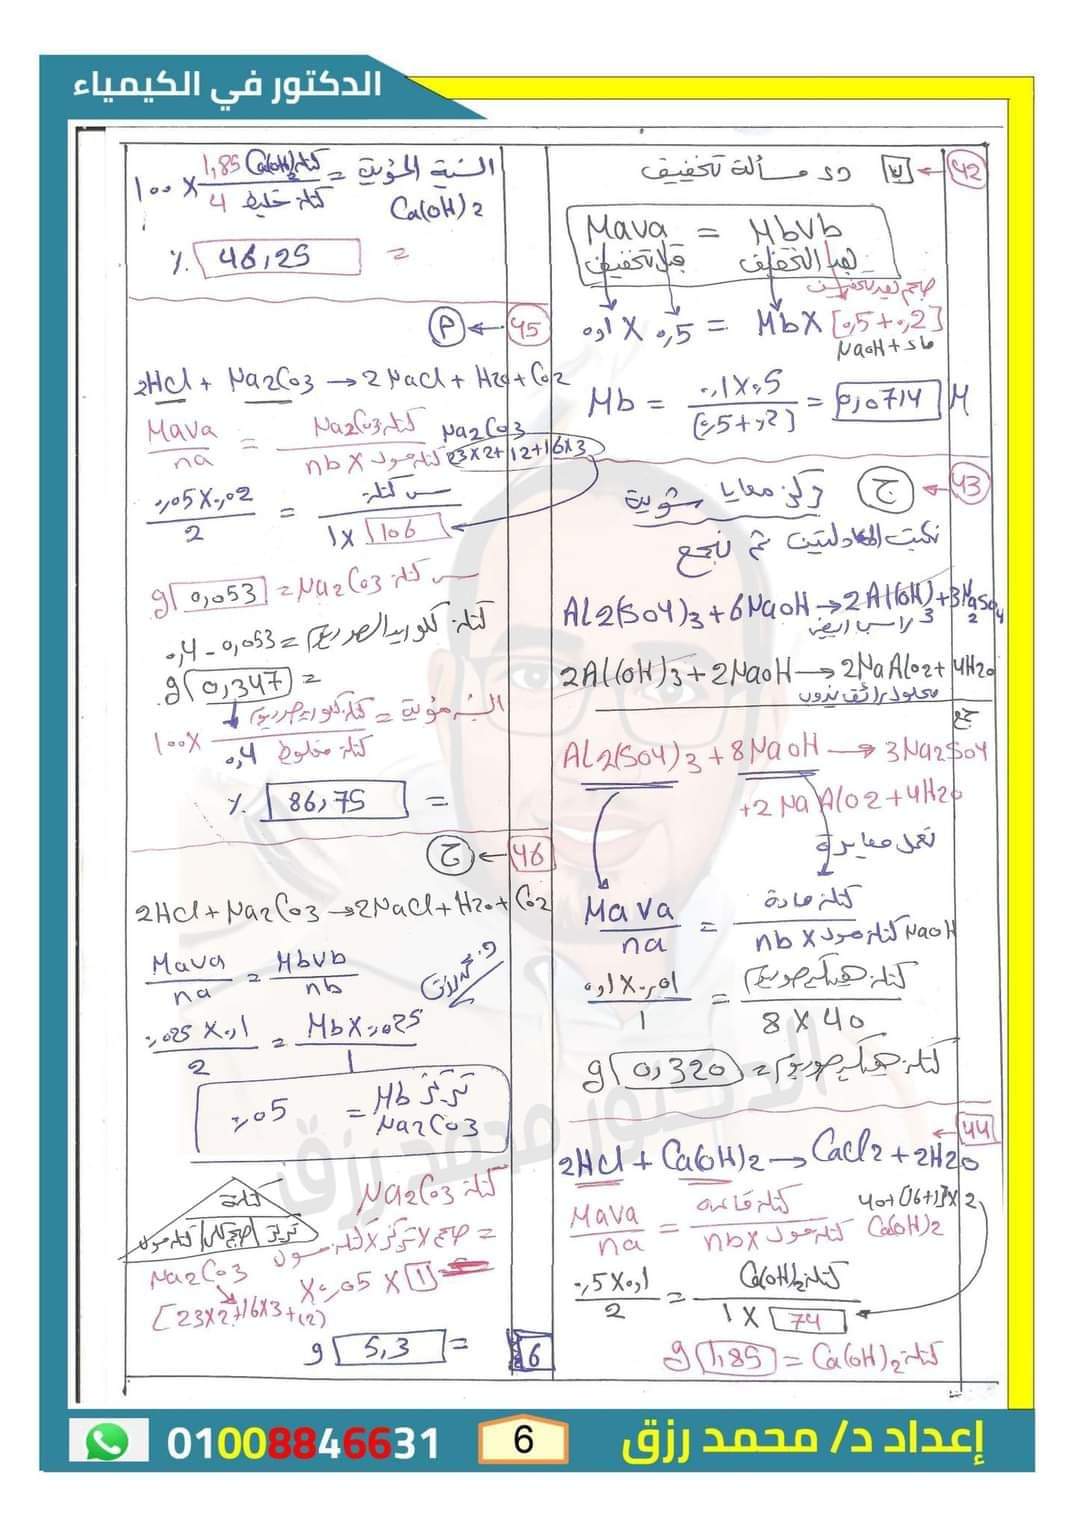 الدكتور في الكيمياء
42 ← د دى مسألة تخفيف
MaVa = MbVb
قبل تخفيف بعد التخفيف
حجم بعد تخفيف
0,1 X 0,5 = Mb X [0,5+0,2]
NaOH + ماء
Mb = 0,1X0,5 / [0,5+0,2] = 0,0714 M
43 ← ج ركز معايا شوية
نكتب المعادلتين ثم نجمع
Al2(SO4)3 + 6NaOH → 2Al(OH)3 + 3Na2SO4
راسب أبيض
2Al(OH)3 + 2NaOH → 2NaAlO2 + 4H2O
محلول رائق يذوب
جمع
Al2(SO4)3 + 8NaOH → 3Na2SO4
+2NaAlO2 + 4H2O
نعمل معايرة
MaVa / na = كتلة مادة / nb X كتلة مول NaOH
0,01 X 0,1 / 1 = كتلة هيدروكسيد صوديوم / 8 X 40
كتلة هيدروكسيد صوديوم = 0,320 g
44 ←
2HCl + Ca(OH)2 → CaCl2 + 2H2O
40+(16+1)X2
Ca(OH)2
MaVa / na = كتلة قاعدة / nb X كتلة مول
0,5X0,1 / 2 = كتلة Ca(OH)2 / 1 X 74
كتلة Ca(OH)2 = 1,85 g
النسبة المئوية Ca(OH)2 = كتلة Ca(OH)2 1,85 / كتلة خليط 4 X 100
= 46,25 %
45 ← م
2HCl + Na2CO3 → 2NaCl + H2O + CO2
MaVa / na = كتلة Na2CO3 / nb X كتلة مول
Na2CO3
23X2+12+16X3
0,05X0,02 / 2 = س كتلة / 1X 106
س كتلة Na2CO3 = 0,053 g
كتلة كلوريد الصوديوم = 0,053 - 0,4
= 0,347 g
النسبة المئوية = كتلة كلوريد صوديوم / كتلة مخلوط 0,4 X 100
= 86,75 %
46 ← ج
2HCl + Na2CO3 → 2NaCl + H2O + CO2
MaVa / na = MbVb / nb
0,025 X 0,1 / 2 = Mb X 0,025 / 1
تركيز Mb Na2CO3 = 0,05
كتلة Na2CO3
= حجم X تركيز X كتلة مول
كتلة
تركيز | حجم | كتلة مول
1 X 0,05 X
Na2CO3
[23X2+16X3+12)
= 5,3 g
6
الدكتور محمد رزق
01008846631
6
إعداد د/ محمد رزق